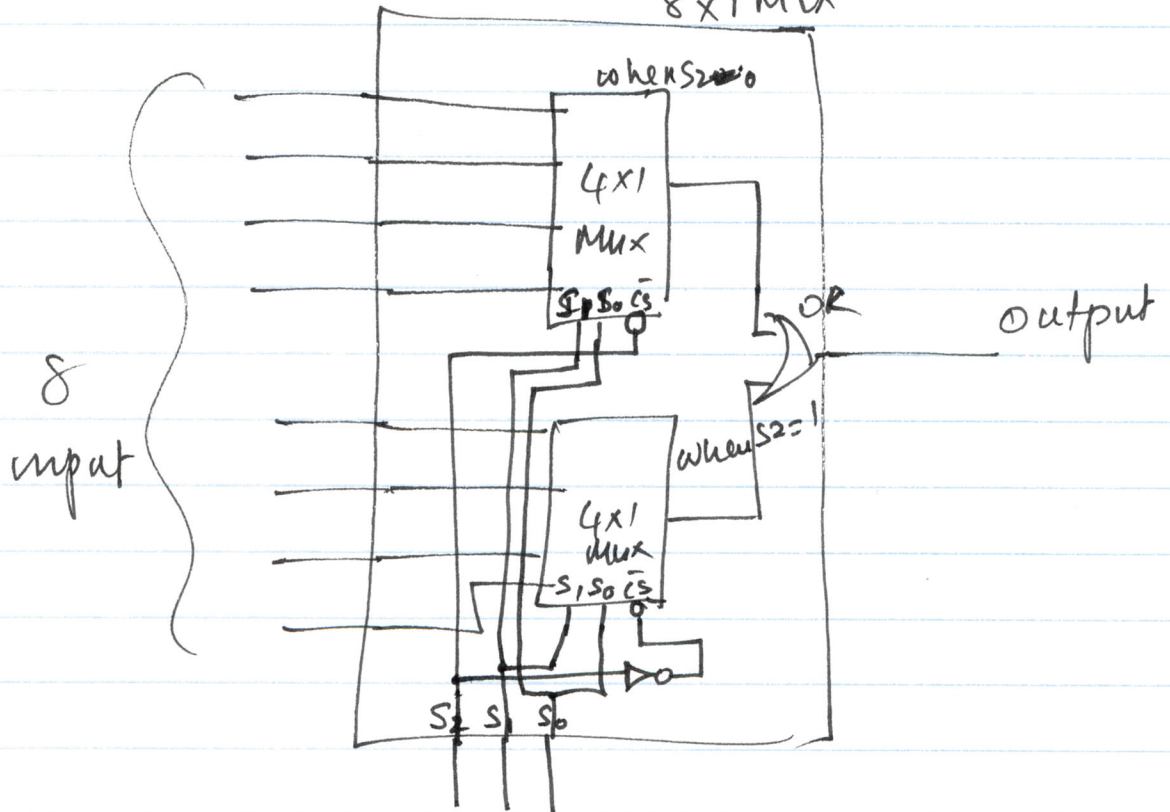 8x1 Mux
when S2=0
4x1
Mux
S1 S0 C̅S̅
OR
output
8
input
when S2=1
4x1
Mux
S1 S0 C̅S̅
S2 S1 S0